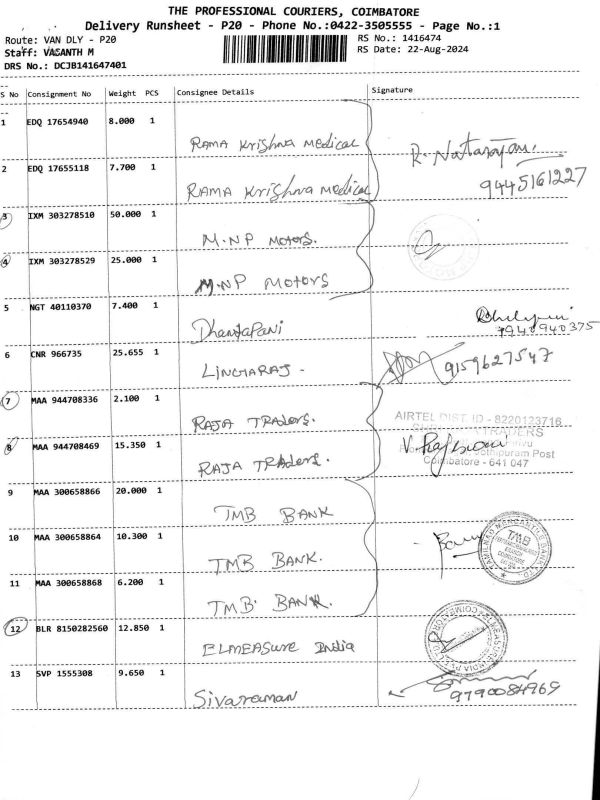 THE PROFESSIONAL COURIERS, COIMBATORE
Delivery Runsheet - P20 - Phone No.:0422-3505555 - Page No.:1
Route: VAN DLY - P20
RS No.: 1416474
Staff: VASANTH M
RS Date: 22-Aug-2024
DRS No.: DCJB141647401
S No Consignment No Weight PCS Consignee Details Signature
1 EDQ 17654940 8.000 1 Rama Krishna Medical
R. Natarajan.
2 EDQ 17655118 7.700 1 Rama Krishna Medical
9445161227
3 IXM 303278510 50.000 1 M.NP Motors.
4 IXM 303278529 25.000 1 M.NP Motors
5 NGT 40110370 7.400 1 Dhantapani
7940940375
6 CNR 966735 25.655 1 LINGARAJ -
9159627547
7 MAA 944708336 2.100 1 RAJA TRADers.
AIRTEL DIST. ID - 8220123716
TRADERS
8 MAA 944708469 15.350 1 RAJA TRADers.
Jothipuram Post
Coimbatore - 641 047
9 MAA 300658866 20.000 1 TMB BANK
10 MAA 300658864 10.300 1 TMB BANK.
TAMILNAD MERCANTILE BANK LTD
TMB
11 MAA 300658868 6.200 1 TMB BANK.
12 BLR 8150282560 12.850 1 ELMEASure India
13 SVP 1555308 9.650 1 Sivaraman
9790084969